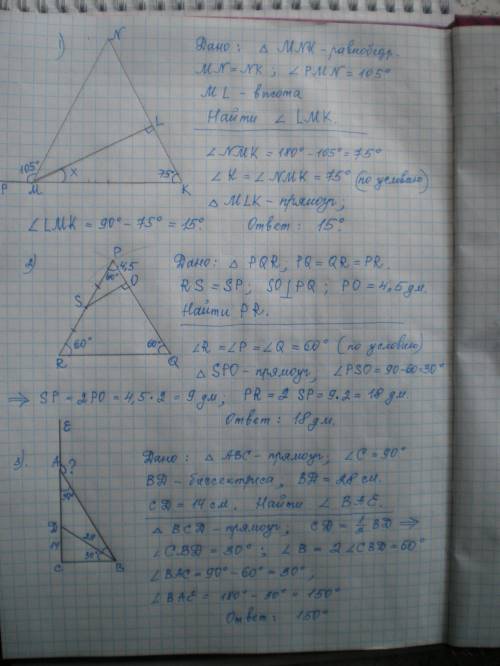 1)
N
Дано: △ MNK - равнобедр.
MN = NK; ∠PMN = 105°
ML - высота
Найти ∠ LMK.
L
105°
x
75°
P
M
K
∠NMK = 180° - 105° = 75°
∠K = ∠NMK = 75° (по условию)
△ MLK - прямоуг,
∠LMK = 90° - 75° = 15°. Ответ: 15°.
2)
P
4,5
60°
O
S
60°
60°
R
Q
Дано: △ PQR, PQ = QR = PR.
RS = SP; SO⊥PQ; PO = 4,5 дм.
Найти PR.
∠R = ∠P = ∠Q = 60° (по условию)
△ SPO - прямоуг, ∠PSO = 90-60=30°
⇒ SP = 2PO = 4,5 · 2 = 9 дм, PR = 2 SP = 9·2 = 18 дм.
Ответ: 18 дм.
3).
E
A
?
30°
D
28
14
30°
C
B
Дано: △ ABC - прямоуг, ∠C = 90°
BD - биссектриса, BD = 28 см.
CD = 14 см. Найти ∠ BAE.
△ BCD - прямоуг, CD = 1/2 BD ⇒
∠CBD = 30°; ∠B = 2∠CBD = 60°
∠BAC = 90° - 60° = 30°,
∠BAE = 180° - 30° = 150°
Ответ: 150°